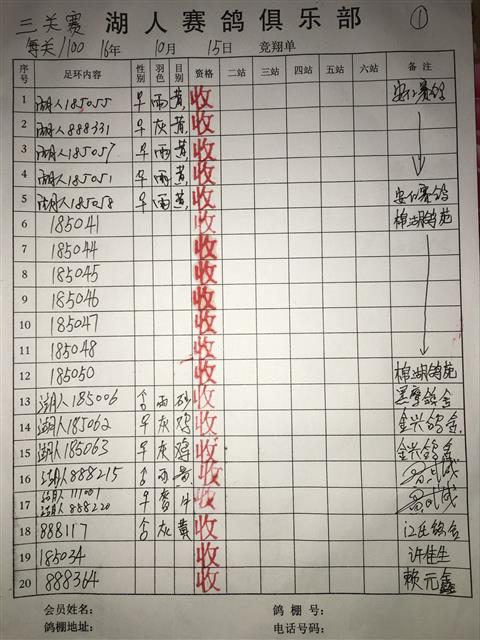 三关赛 湖人赛鸽俱乐部 ①
每关/100 16年 10月 15日 竞翔单
序号 足环内容 性别 羽色 目别 资格 二站 三站 四站 五站 六站 备注
1 湖人185055 早 雨 黄 收 安仁赛鸽
2 湖人888331 早 灰 黄 收
3 湖人185057 早 雨 黄 收
4 湖人185051 早 雨 黄 收
5 湖人185058 早 雨 黄 收 安仁赛鸽
6 185041 收 棉湖鸽苑
7 185044 收
8 185045 收
9 185046 收
10 185047 收
11 185048 收
12 185050 收 棉湖鸽苑
13 湖人185006 雨 砂 收
14 湖人185062 早 灰 鸡 收 金兴鸽舍
15 湖人185063 早 灰 鸡 收 金兴鸽舍
16 湖人888215 雨 收
17 湖人888220 早 收
18 888117 灰 黄 收
19 185034 收 许佳生
20 888364 收 赖元鑫
会员姓名： 鸽棚号：
鸽棚地址： 电话号码：